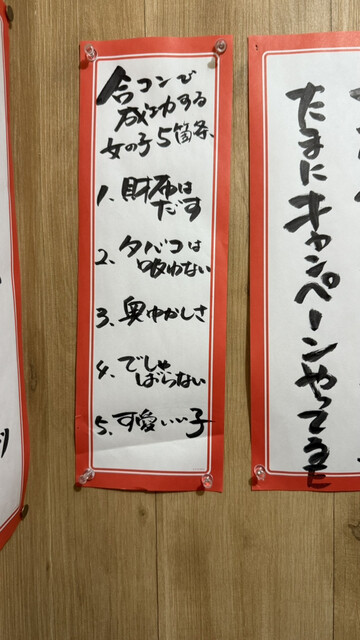 合コンで
成功する
女の子5箇条、
1、財布は
だす
2、タバコは
吸わない
3、奥ゆかしさ
4、でしゃ
ばらない
5、可愛いい子
たまにキャンペーンやってるモ